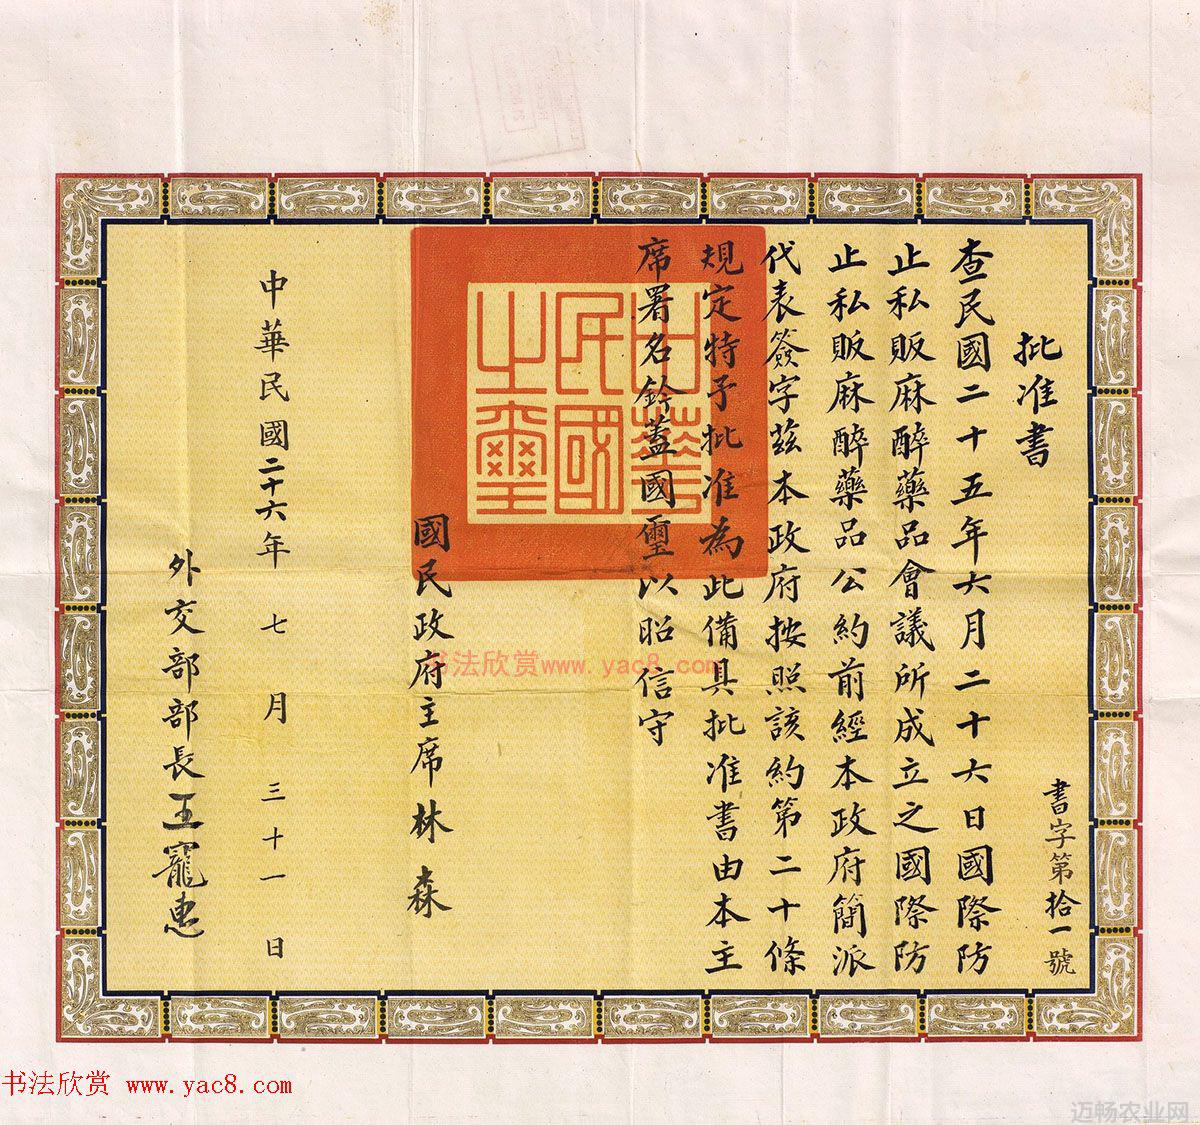 批准書
書字第拾一號
查民國二十五年六月二十六日國際防
止私販麻醉藥品會議所成立之國際防
止私販麻醉藥品公約前經本政府簡派
代表簽字茲本政府按照該約第二十條
規定特予批准為此備具批准書由本主
席署名鈐蓋國璽以昭信守
中華民國之璽
國民政府主席林森
中華民國二十六年七月三十一日
外交部部長王寵惠
书法欣赏www.yac8.com
书法欣赏 www.yac8.com
迈畅农业网